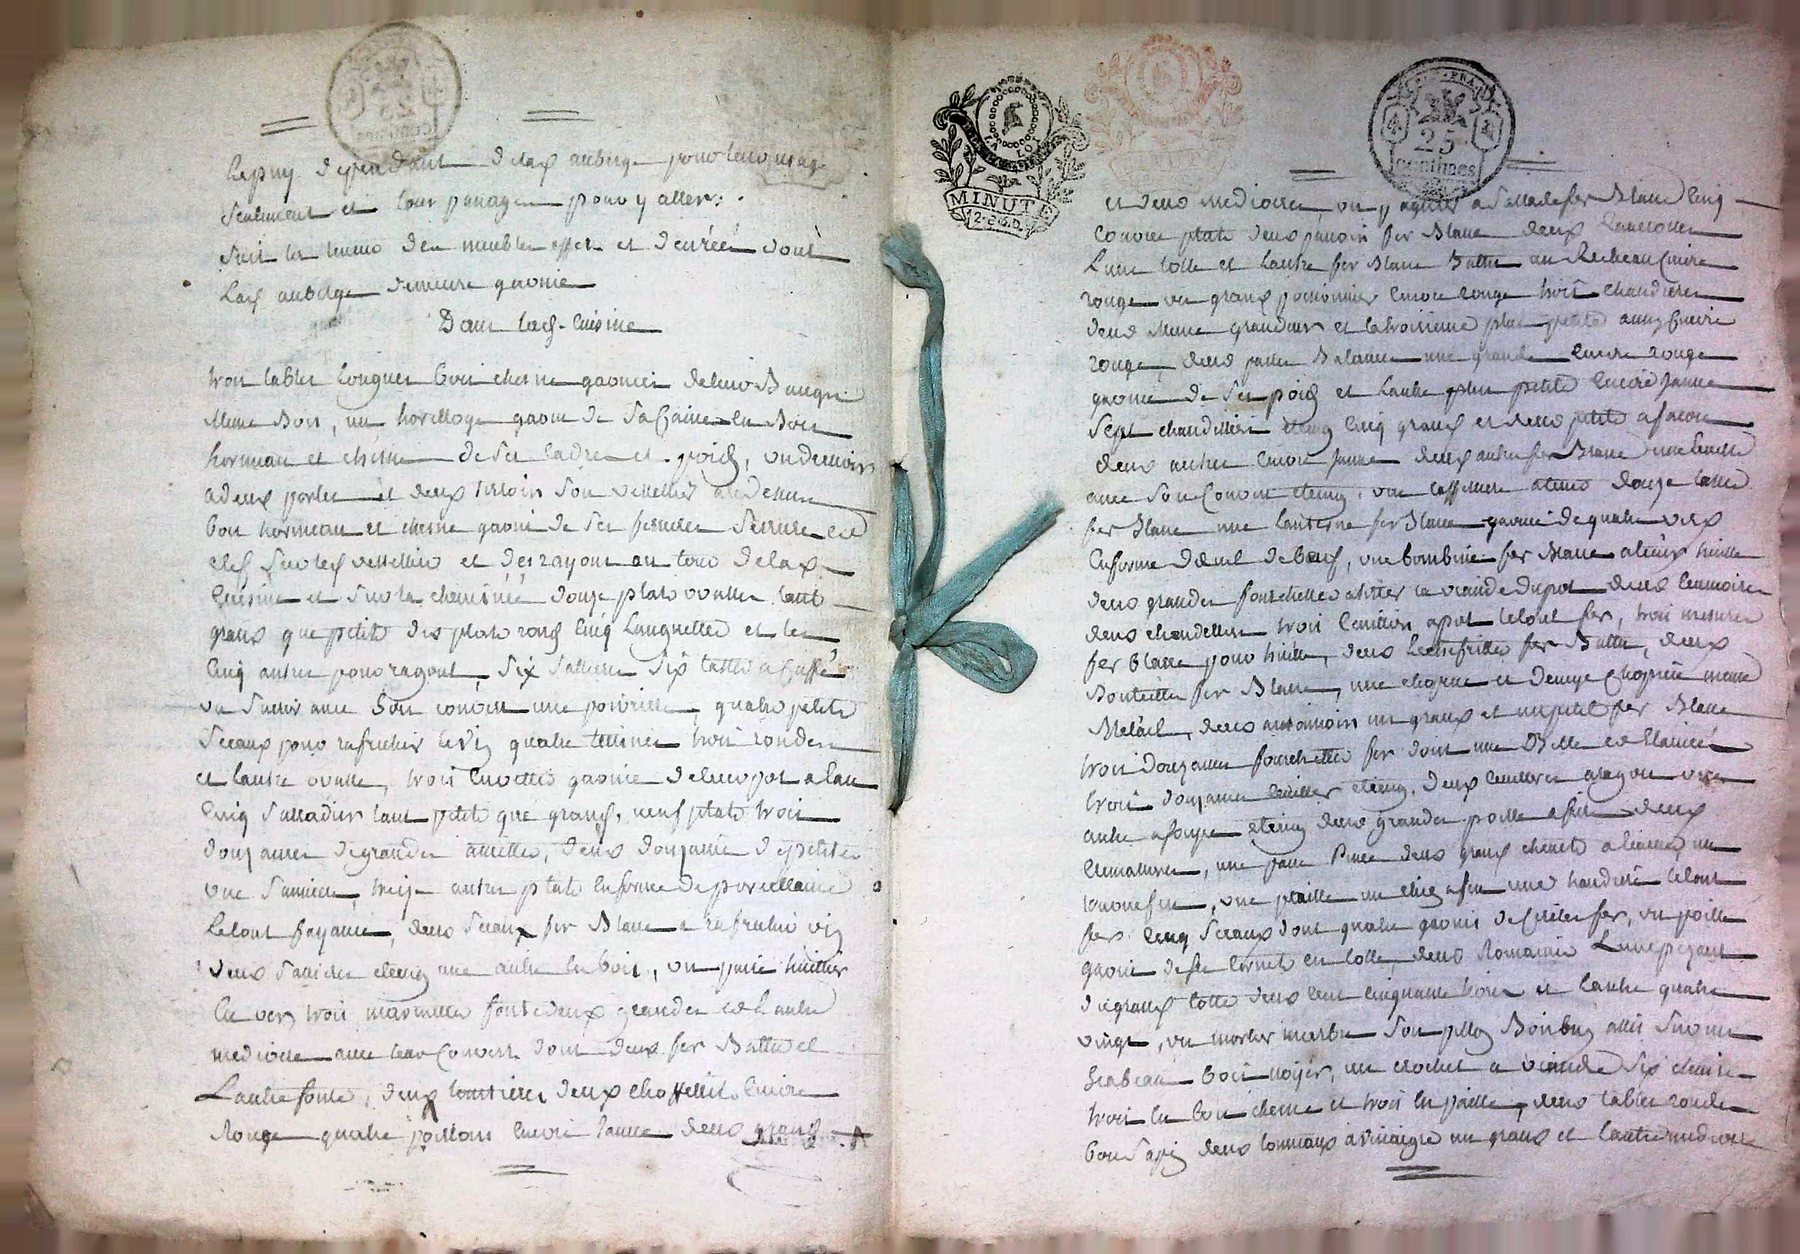 Le puy dependant de lad auberge pour leur usage
seulement et leur passage pour y aller.
suit la teneur des meubles effets et denrées dont
lad auberge demeure garnie
Dans lad. Cuisine
trois tables longues bois chesne garnies de leurs Banqs
meme Bois, un horelloge garni de sa Caisse en Bois
hormeau et chesne de ses cadre et poids, un dressoir
a deux portes et deux tiroirs son vesselier au dessus
bois hormeau et chesne garni de ses ferrures serrure et
clef sur led vesselier et des rayons au tour de lad
Cuisine et sur la cheminée douze plats ovalles tant
grands que petits dix plats rond cinq Languettes et les
cinq autres pour ragout, six salieres six tasses a Caffé
un sucrier avec son couvert une poivriere, quatre petits
sceaux pour rafraichir le vin quatre terrines trois rondes
et l'autre ovalle, trois cuvettes garnies de leur pot a l'eau
Cinq salladiers tant petits que grands, neuf plats trois
douzaines de grandes assiettes, deux douzaine de petites
une sauciere, treize autres plats en forme de porcellaine
le tout fayance, deux sceaux fer Blanc a rafraichir vin
deux salieres eteing une autre en bois, un porte huillier
en vers trois marmittes fonte deux grandes et l'autre
mediocre avec leur Couvert dont deux fer Battu et
L'autre fonte, deux deux choffettes Cuivre
Rouge quatre poillons Cuivre Jaune deux grands
MINUTE
12.S.6.D.
LA LOI
25
centimes
et deux mediocres, un y a sallade fer Blanc Cinq
Couvert plats deux passoirs fer Blanc deux
L'une tolle et L'autre fer Blanc Battu un Recheau Cuivre
rouge un grand poissonnier Cuivre rouge trois chaudieres
deux meme grandeur et la troisieme plus petite aussy Cuivre
rouge, deux paires Balances une grande Cuivre rouge
garnie de ses poids et L'autre plus petite Cuivre Jaune
sept chandelliers eteing Cinq grands et deux petits a facon
deux autres Cuivre Jaune deux autres fer Blanc une
avec son Couvert eteing, une Caffetiere a tenir douze tasses
fer Blanc une lanterne fer Blanc garnie de quatre vers
en forme d'oeuil de boeuf, une bombine fer Blanc a tenir huille
deux grandes fourchettes a tirer la viande du pot deux
deux chandelliers trois Cuilliers a pot le tout fer, trois mesures
fer Blanc pour huille, deux Lechefrittes fer Battu, deux
Bouteilles fer Blanc, une chopine et demye chopine meme
Metail, deux antonnoirs un grand et un petit fer Blanc
trois douzaines fourchettes fer dont une
trois douzaines Cuilleres eteing, deux Cuilleres a ragout une
autre a soupe eteing deux grandes poilles a frire deux
Cremalieres, une paire Pince deux grand chenets a un
tourne feu, une paille un a feu une le tout
fer Cinq sceaux dont quatre garnis de Cercles fer, un poille
garni de ses Cornets en tolle, deux Romaines L'une pezant
du grand Cotté deux Cent Cinquante livres et L'autre quatre
vingt, un mortier marbre son pillon Bois buy assis sur un
bois noyer, un crochet a viande six chaises
trois en bois chesne et trois en paille, deux tables rondes
bois sapin deux tonneaux a vinaigre un grand et l'autre mediocre